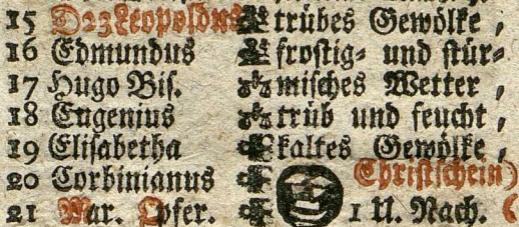 15 D23Leopoldus trübes Gewölke,
16 Edmundus frostig- und stür-
17 Hugo Bis. misches Wetter,
18 Eugenius trüb und feucht,
19 Elisabetha kaltes Gewölke,
20 Corbinianus Christschein)
21 Mar. Opfer. 1 U. Nach. (